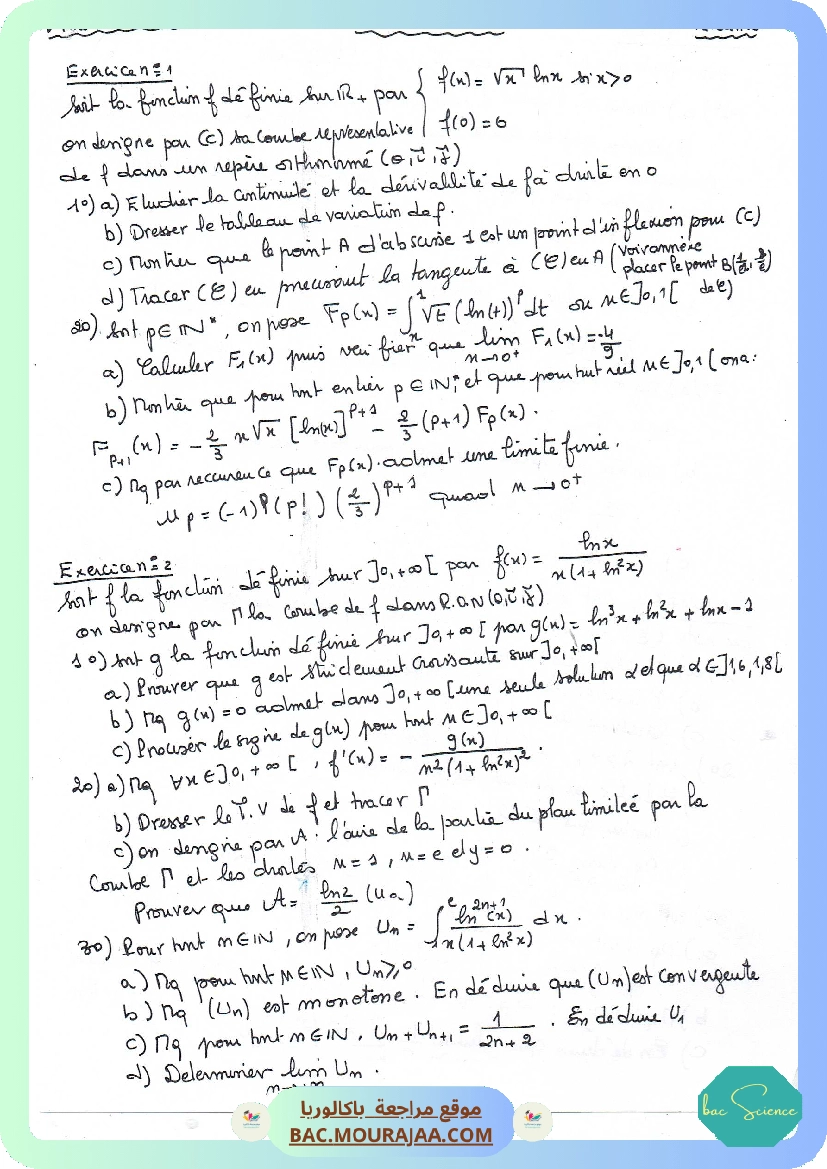 Exercice n°1
Soit la fonction f définie sur IR+ par { f(x) = √x ln x si x>0
on designe par (C) sa courbe representative { f(0) = 0
de f dans un repère orthonormé (o, i, j)
1°) a) Etudier la continuité et la dérivabilité de f à droite en 0
b) Dresser le tableau de variation de f.
c) Montrer que le point A d'abscisse 1 est un point d'inflexion pour (C)
d) Tracer (C) en precisant la tangente à (C) en A (
placer le point B de C)
2°) Soit p ∈ IN*, on pose Fp(x) = ∫_x^1 √t (ln(t))^p dt où x ∈ ]0,1[
a) Calculer F1(x) puis verifier que lim_{x→0+} F1(x) = -4/9
b) Montrer que pour tout entier p ∈ IN*, et que pour tout réel x ∈ ]0,1[ on a:
F_{p+1}(x) = - 2/3 x√x [ln(x)]^{p+1} - 2/3 (p+1) Fp(x).
c) Mq par reccurence que Fp(x) admet une limite finie.
Up = (-1)^p (p!) (2/3)^{p+1} quand x → 0+
Exercice n°2
Soit f la fonction définie sur ]0,+∞[ par f(x) = ln x / x(1+ln²x)
on designe par Γ la courbe de f dans R.O.N (o, i, j)
1°) Soit g la fonction définie sur ]0,+∞[ par g(x) = ln³x + ln²x + ln x - 1
a) Prouver que g est strictement croissante sur ]0,+∞[
b) Mq g(x) = 0 admet dans ]0,+∞[ une seule solution α et que α ∈ ]1,6,1,8[
c) Preciser le signe de g(x) pour tout x ∈ ]0,+∞[
2°) a) Mq ∀x ∈ ]0,+∞[ , f'(x) = - g(x) / x²(1+ln²x)² .
b) Dresser le T.V de f et tracer Γ
c) on designe par A : l'aire de la partie du plan limiteé par la
Courbe Γ et les droites x = 1, x = e et y = 0.
Prouver que A = ln2/2 (u.a)
3°) Pour tout n ∈ IN, on pose Un = ∫_1^e ln^{2n+1}(x) / x(1+ln²x) dx.
a) Mq pour tout n ∈ IN, Un ≥ 0
b) Mq (Un) est monotone. En déduire que (Un) est convergente
c) Mq pour tout n ∈ IN. Un + Un+1 = 1/2n+2 . En déduire U1
d) Determiner lim Un.
موقع مراجعة باكالوريا
BAC.MOURAJAA.COM
bac Science